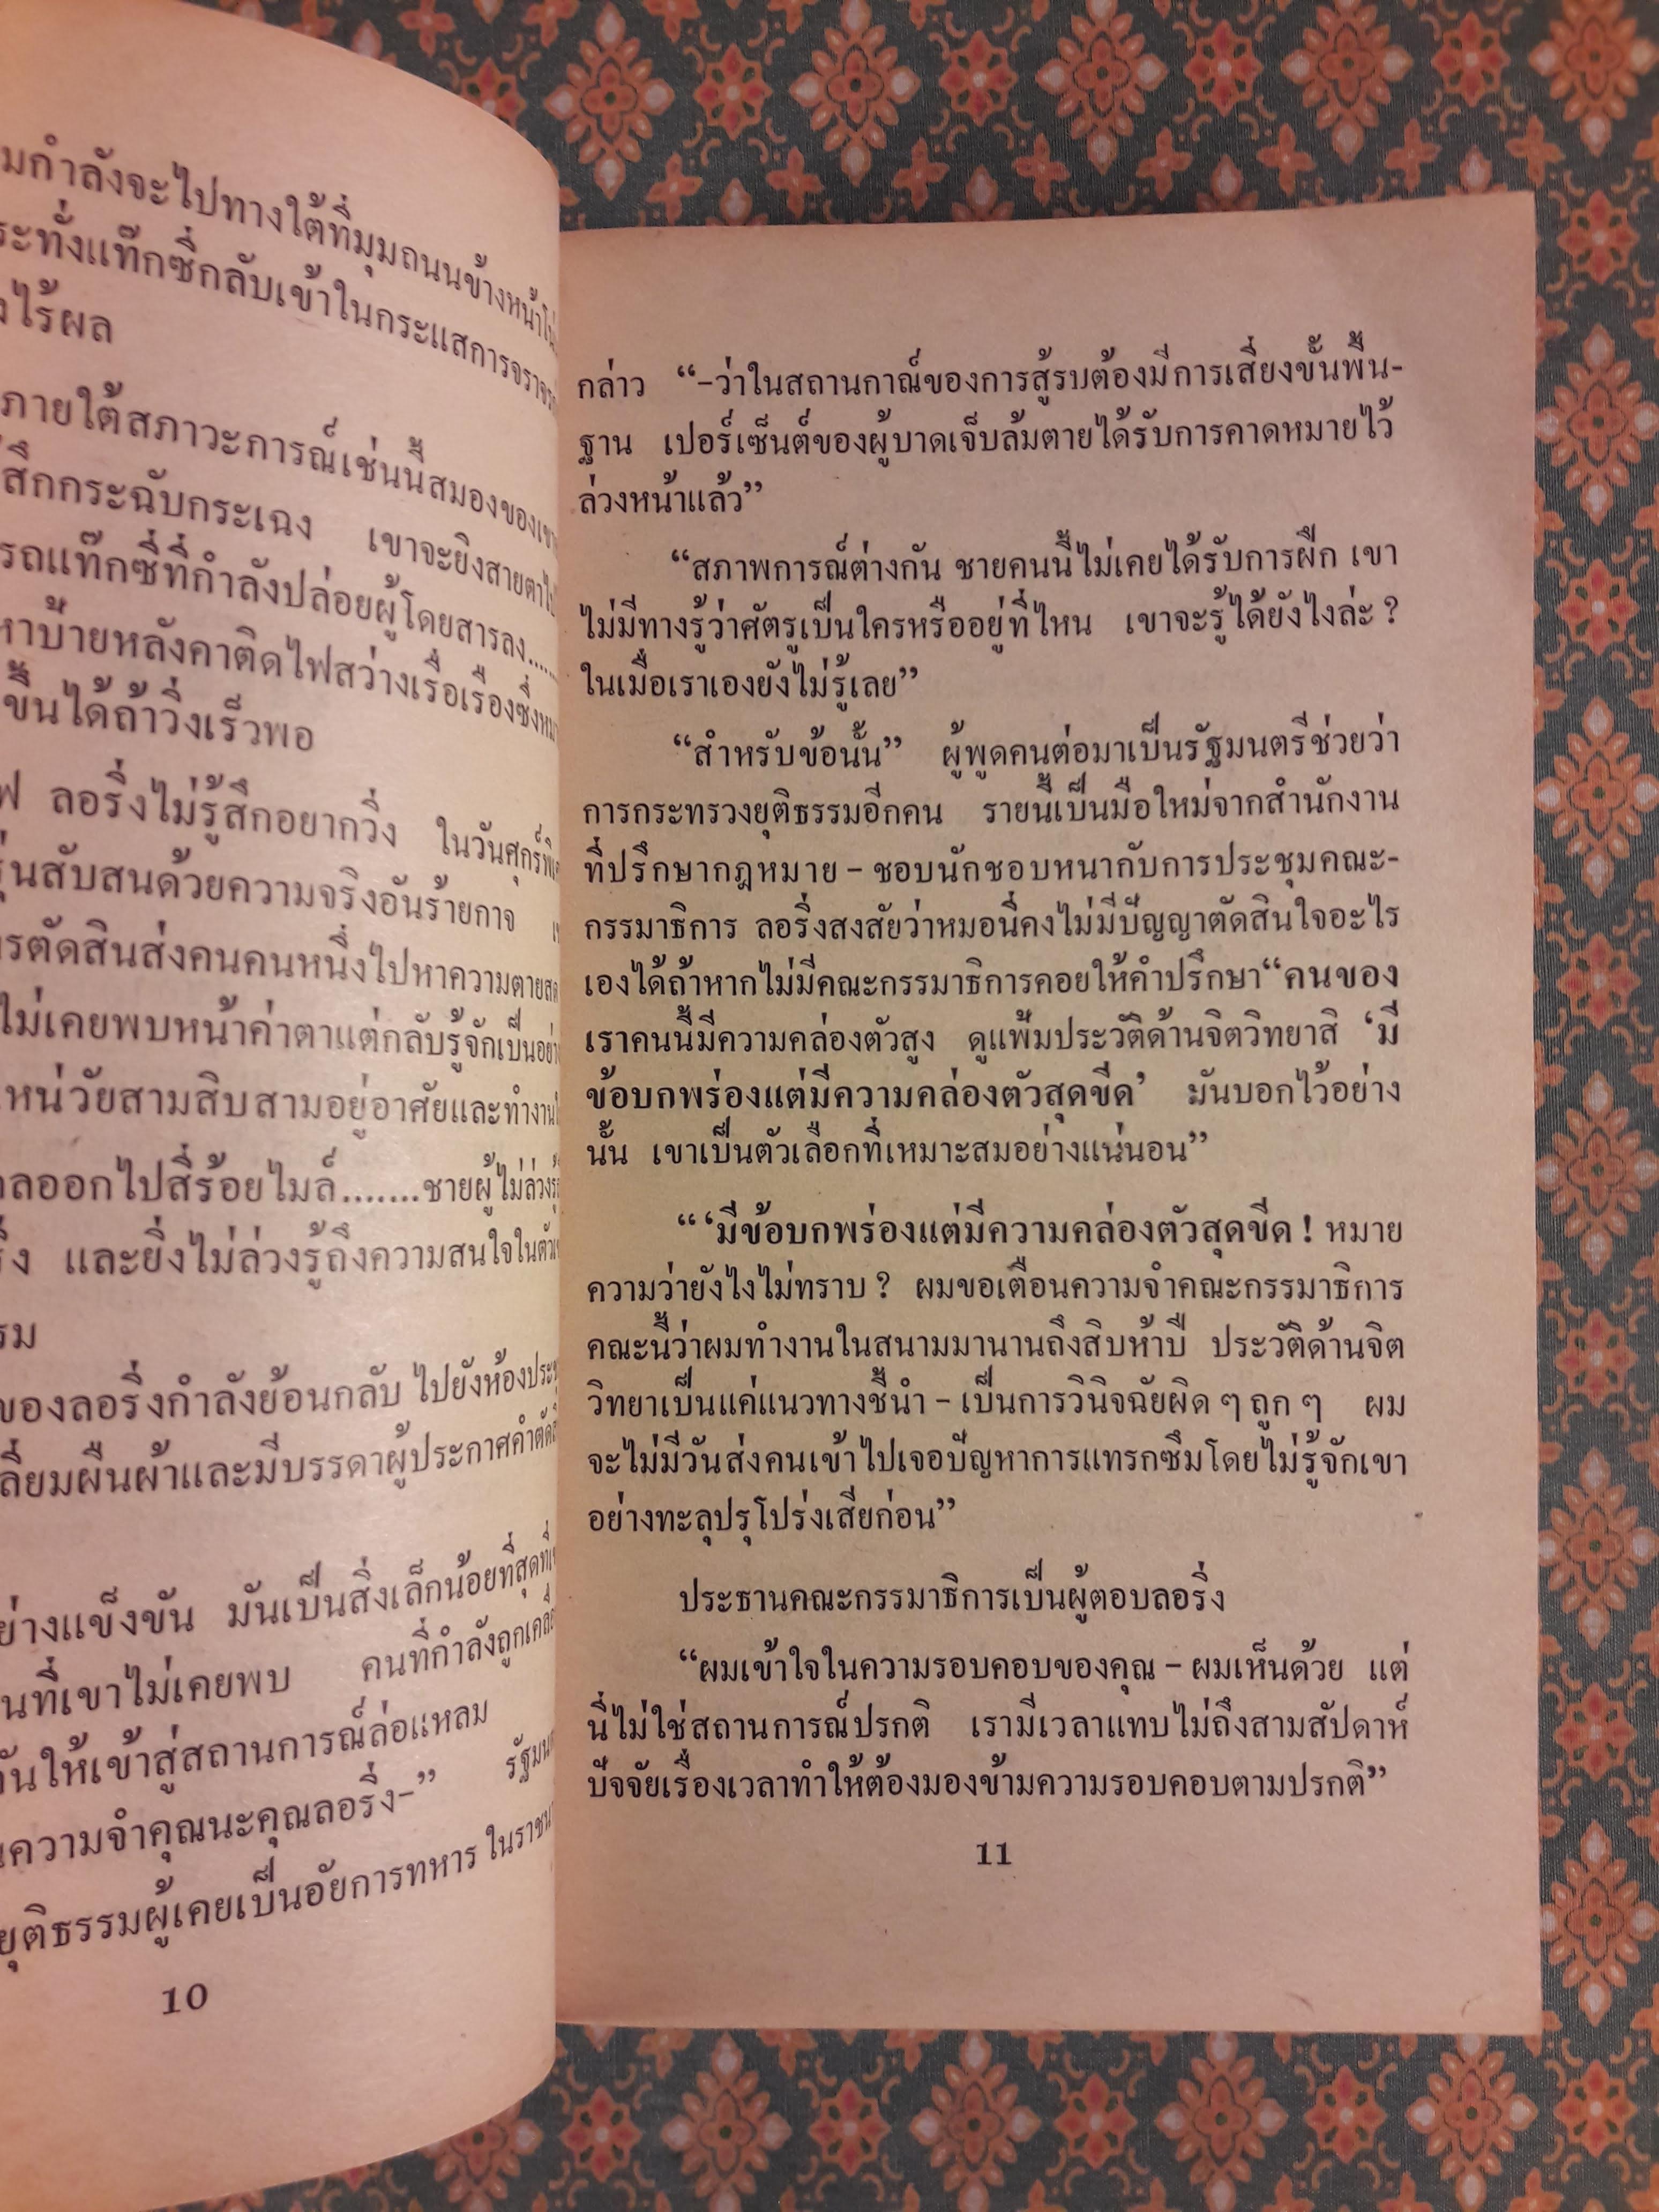 มกำลังจะไปทางใต้ที่มุมถนนข้างหน้า
ระทั่งแท๊กซี่กลับเข้าในกระแสการจราจร
ไร้ผล
ภายใต้สภาวะการณ์เช่นนี้สมองของ
สึกกระฉับกระเฉง เขาจะยิงสายตา
รถแท๊กซี่ที่กำลังปล่อยผู้โดยสารลง.....
หาบ้ายหลังคาติดไฟสว่างเรื่อเรืองซึ่ง
ขึ้นได้ถ้าวิ่งเร็วพอ
ลอริ่งไม่รู้สึกอยากวิ่ง ในวันศุกร์
สับสนด้วยความจริงอันร้ายกาจ
รตัดสินส่งคนคนหนึ่งไปหาความตาย
ไม่เคยพบหน้าค่าตาแต่กลับรู้จักเป็นอย่าง
หน่วัยสามสิบสามอยู่อาศัยและทำงาน
ลออกไปสี่ร้อยไมล์.......ชายผู้ไม่ล่วงรู้
และยิ่งไม่ล่วงรู้ถึงความสนใจในตัว
รม
ของลอริ่งกำลังย้อนกลับไปยังห้อง
ลี่ยมผืนผ้าและมีบรรดาผู้ประกาศคำ
ย่างแข็งขัน มันเป็นสิ่งเล็กน้อยที่สุด
นที่เขาไม่เคยพบ คนที่กำลังถูก
กันให้เข้าสู่สถานการณ์ล่อแหลม
ความจำคุณนะคุณลอริ่ง-”
ยุติธรรมผู้เคยเป็นอัยการทหาร ในราช
10
กล่าว “-ว่าในสถานกาณ์ของการสู้รบต้องมีการเสี่ยงขั้นพื้น-
ฐาน เปอร์เซ็นต์ของผู้บาดเจ็บล้มตายได้รับการคาดหมายไว้
ล่วงหน้าแล้ว”
“สภาพการณ์ต่างกัน ชายคนนี้ไม่เคยได้รับการฝึก เขา
ไม่มีทางรู้ว่าศัตรูเป็นใครหรืออยู่ที่ไหน เขาจะรู้ได้ยังไงล่ะ ?
ในเมื่อเราเองยังไม่รู้เลย”
“สำหรับข้อนั้น” ผู้พูดคนต่อมาเป็นรัฐมนตรีช่วยว่า
การกระทรวงยุติธรรมอีกคน รายนี้เป็นมือใหม่จากสำนักงาน
ที่ปรึกษากฎหมาย - ชอบนักชอบหนากับการประชุมคณะ-
กรรมาธิการ ลอริ่งสงสัยว่าหมอนี่คงไม่มีปัญญาตัดสินใจอะไร
เองได้ถ้าหากไม่มีคณะกรรมาธิการคอยให้คำปรึกษา“คนของ
เราคนนี้มีความคล่องตัวสูง ดูแฟ้มประวัติด้านจิตวิทยาสิ ‘มี
ข้อบกพร่องแต่มีความคล่องตัวสุดขีด’ มันบอกไว้อย่าง
นั้น เขาเป็นตัวเลือกที่เหมาะสมอย่างแน่นอน”
“ ‘มีข้อบกพร่องแต่มีความคล่องตัวสุดขีด ! หมาย
ความว่ายังไงไม่ทราบ ? ผมขอเตือนความจำคณะกรรมาธิการ
คณะนี้ว่าผมทำงานในสนามมานานถึงสิบห้าปี ประวัติด้านจิต
วิทยาเป็นแค่แนวทางชี้นำ - เป็นการวินิจฉัยผิด ๆ ถูก ๆ ผม
จะไม่มีวันส่งคนเข้าไปเจอปัญหาการแทรกซึมโดยไม่รู้จักเขา
อย่างทะลุปรุโปร่งเสียก่อน”
ประธานคณะกรรมาธิการเป็นผู้ตอบลอริ่ง
“ผมเข้าใจในความรอบคอบของคุณ - ผมเห็นด้วย แต่
นี่ไม่ใช่สถานการณ์ปรกติ เรามีเวลาแทบไม่ถึงสามสัปดาห์
ปัจจัยเรื่องเวลาทำให้ต้องมองข้ามความรอบคอบตามปรกติ”
11